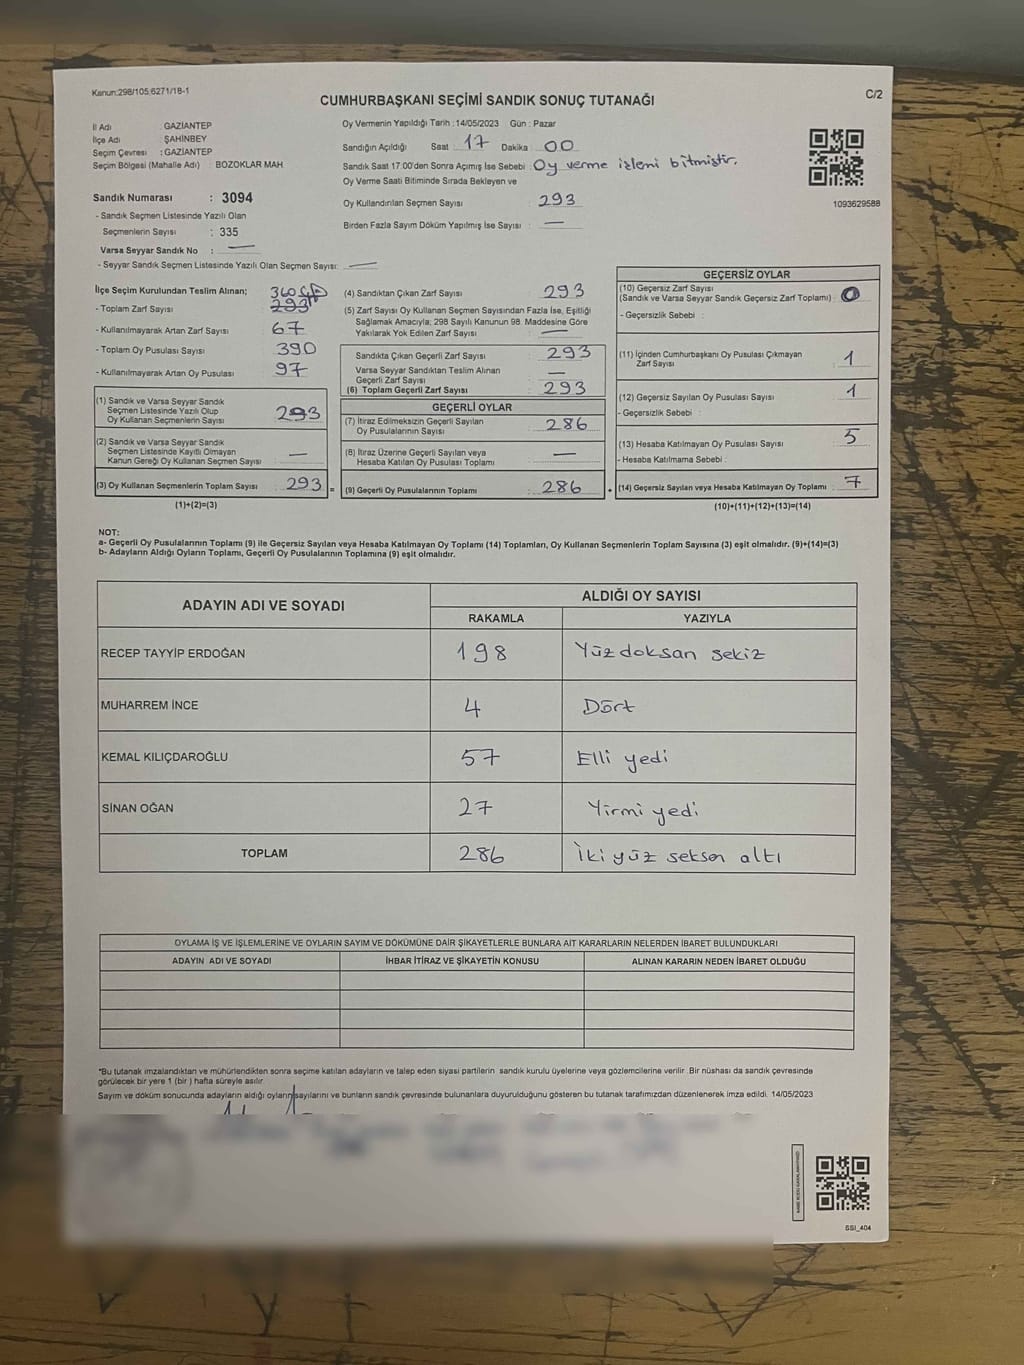 Kanun:298/105;6271/18-1
CUMHURBAŞKANI SEÇİMİ SANDIK SONUÇ TUTANAĞI
C/2
İl Adı GAZİANTEP
İlçe Adı ŞAHİNBEY
Seçim Çevresi : GAZİANTEP
Seçim Bölgesi (Mahalle Adı) : BOZOKLAR MAH
Sandık Numarası : 3094
- Sandık Seçmen Listesinde Yazılı Olan
Seçmenlerin Sayısı : 335
Varsa Seyyar Sandık No : —
- Seyyar Sandık Seçmen Listesinde Yazılı Olan Seçmen Sayısı: —
Oy Vermenin Yapıldığı Tarih :14/05/2023 Gün : Pazar
Sandığın Açıldığı Saat 17 Dakika 00
Sandık Saat 17:00'den Sonra Açımış İse Sebebi : Oy verme işlemi bitmiştir.
Oy Verme Saati Bitiminde Sırada Bekleyen ve
Oy Kullandırılan Seçmen Sayısı : 293
Birden Fazla Sayım Döküm Yapılmış İse Sayısı : —
1093629588
İlçe Seçim Kurulundan Teslim Alınan; 360
- Toplam Zarf Sayısı 293
- Kullanılmayarak Artan Zarf Sayısı 67
- Toplam Oy Pusulası Sayısı 390
- Kullanılmayarak Artan Oy Pusulası 97
(1) Sandık ve Varsa Seyyar Sandık
Seçmen Listesinde Yazılı Olup
Oy Kullanan Seçmenlerin Sayısı 293
(2) Sandık ve Varsa Seyyar Sandık
Seçmen Listesinde Kayıtlı Olmayan
Kanun Gereği Oy Kullanan Seçmen Sayısı —
(3) Oy Kullanan Seçmenlerin Toplam Sayısı 293 =
(1)+(2)=(3)
(4) Sandıktan Çıkan Zarf Sayısı 293
(5) Zarf Sayısı Oy Kullanan Seçmen Sayısından Fazla İse, Eşitliği
Sağlamak Amacıyla; 298 Sayılı Kanunun 98. Maddesine Göre
Yakılarak Yok Edilen Zarf Sayısı : —
Sandıkta Çıkan Geçerli Zarf Sayısı : 293
Varsa Seyyar Sandıktan Teslim Alınan
Geçerli Zarf Sayısı : —
(6) Toplam Geçerli Zarf Sayısı : 293
GEÇERLİ OYLAR
(7) İtiraz Edilmeksizin Geçerli Sayılan
Oy Pusulalarının Sayısı : 286
(8) İtiraz Üzerine Geçerli Sayılan veya
Hesaba Katılan Oy Pusulası Toplamı : —
(9) Geçerli Oy Pusulalarının Toplamı : 286 +
GEÇERSİZ OYLAR
(10) Geçersiz Zarf Sayısı
(Sandık ve Varsa Seyyar Sandık Geçersiz Zarf Toplamı) : 0
- Geçersizlik Sebebi :
(11) İçinden Cumhurbaşkanı Oy Pusulası Çıkmayan
Zarf Sayısı : 1
(12) Geçersiz Sayılan Oy Pusulası Sayısı : 1
- Geçersizlik Sebebi :
(13) Hesaba Katılmayan Oy Pusulası Sayısı : 5
- Hesaba Katılmama Sebebi :
(14) Geçersiz Sayılan veya Hesaba Katılmayan Oy Toplamı : 7
(10)+(11)+(12)+(13)=(14)
NOT:
a- Geçerli Oy Pusulalarının Toplamı (9) ile Geçersiz Sayılan veya Hesaba Katılmayan Oy Toplamı (14) Toplamları, Oy Kullanan Seçmenlerin Toplam Sayısına (3) eşit olmalıdır. (9)+(14)=(3)
b- Adayların Aldığı Oyların Toplamı, Geçerli Oy Pusulalarının Toplamına (9) eşit olmalıdır.
ADAYIN ADI VE SOYADI ALDIĞI OY SAYISI
RAKAMLA YAZIYLA
RECEP TAYYİP ERDOĞAN 198 Yüz doksan sekiz
MUHARREM İNCE 4 Dört
KEMAL KILIÇDAROĞLU 57 Elli yedi
SİNAN OĞAN 27 Yirmi yedi
TOPLAM 286 İki yüz seksen altı
OYLAMA İŞ VE İŞLEMLERİNE VE OYLARIN SAYIM VE DÖKÜMÜNE DAİR ŞİKAYETLERLE BUNLARA AİT KARARLARIN NELERDEN İBARET BULUNDUKLARI
ADAYIN ADI VE SOYADI İHBAR İTİRAZ VE ŞİKAYETİN KONUSU ALINAN KARARIN NEDEN İBARET OLDUĞU
*Bu tutanak imzalandıktan ve mühürlendikten sonra seçime katılan adayların ve talep eden siyasi partilerin sandık kurulu üyelerine veya gözlemcilerine verilir .Bir nüshası da sandık çevresinde
görülecek bir yere 1 (bir ) hafta süreyle asılır
Sayım ve döküm sonucunda adayların aldığı oyların sayılarını ve bunların sandık çevresinde bulunanlara duyurulduğunu gösteren bu tutanak tarafımızdan düzenlenerek imza edildi. 14/05/2023
SSI_404